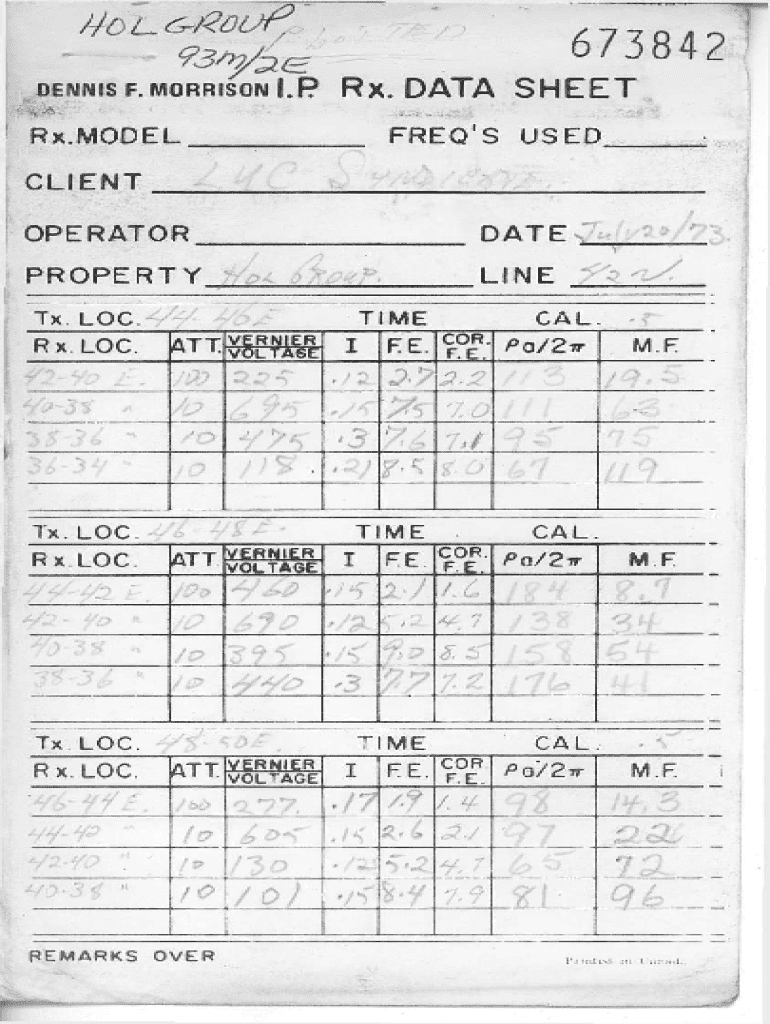 HOL GROUP
PLOTTED
93M/2E
673842
DENNIS F. MORRISON I.P. Rx. DATA SHEET
Rx. MODEL FREQ'S USED
CLIENT LUC SYNDICATE.
OPERATOR DATE July 20/73.
PROPERTY HOL GROUP. LINE 42N.
Tx. LOC. 44-46E TIME CAL. .5
Rx. LOC. ATT. VERNIER VOLTAGE I F.E. COR. F.E. Pa/2π M.F.
42-40 E. 100 225 .12 2.7 2.2 113 19.5
40-38 " 10 695 .15 7.5 7.0 111 63
38-36 " 10 475 .3 7.6 7.1 95 75
36-34 " 10 118 .21 8.5 8.0 67 119
Tx. LOC. 46-48E. TIME CAL.
Rx. LOC. ATT. VERNIER VOLTAGE I F.E. COR. F.E. Pa/2π M.F.
44-42 E. 100 460 .15 2.1 1.6 184 8.7
42-40 " 10 690 .12 5.2 4.7 138 34
40-38 " 10 395 .15 9.0 8.5 158 54
38-36 " 10 440 .3 7.7 7.2 176 41
Tx. LOC. 48-50E. TIME CAL. .5
Rx. LOC. ATT. VERNIER VOLTAGE I F.E. COR. F.E. Pa/2π M.F.
46-44 E. 100 277. .17 1.9 1.4 98 14.3
44-42 " 10 605 .15 2.6 2.1 97 22
42-40 " 10 130 .12 5.2 4.7 65 72
40-38 " 10 101 .15 8.4 7.9 81 96
REMARKS OVER
Printed in Canada